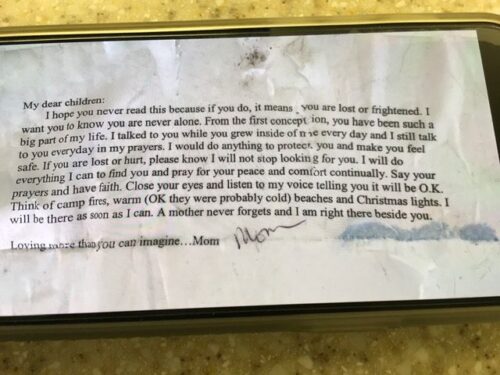 My dear children:
I hope you never read this because if you do, it means you are lost or frightened. I
want you to know you are never alone. From the first concept ion, you have been such a
big part of my life. I talked to you while you grew inside of me every day and I still talk
to you everyday in my prayers. I would do anything to protect you and make you feel
safe. If you are lost or hurt, please know I will not stop looking for you. I will do
everything I can to find you and pray for your peace and comfort continually. Say your
prayers and have faith. Close your eyes and listen to my voice telling you it will be O.K.
Think of camp fires, warm (OK they were probably cold) beaches and Christmas lights. I
will be there as soon as I can. A mother never forgets and I am right there beside you.
Loving more than you can imagine…Mom Mom